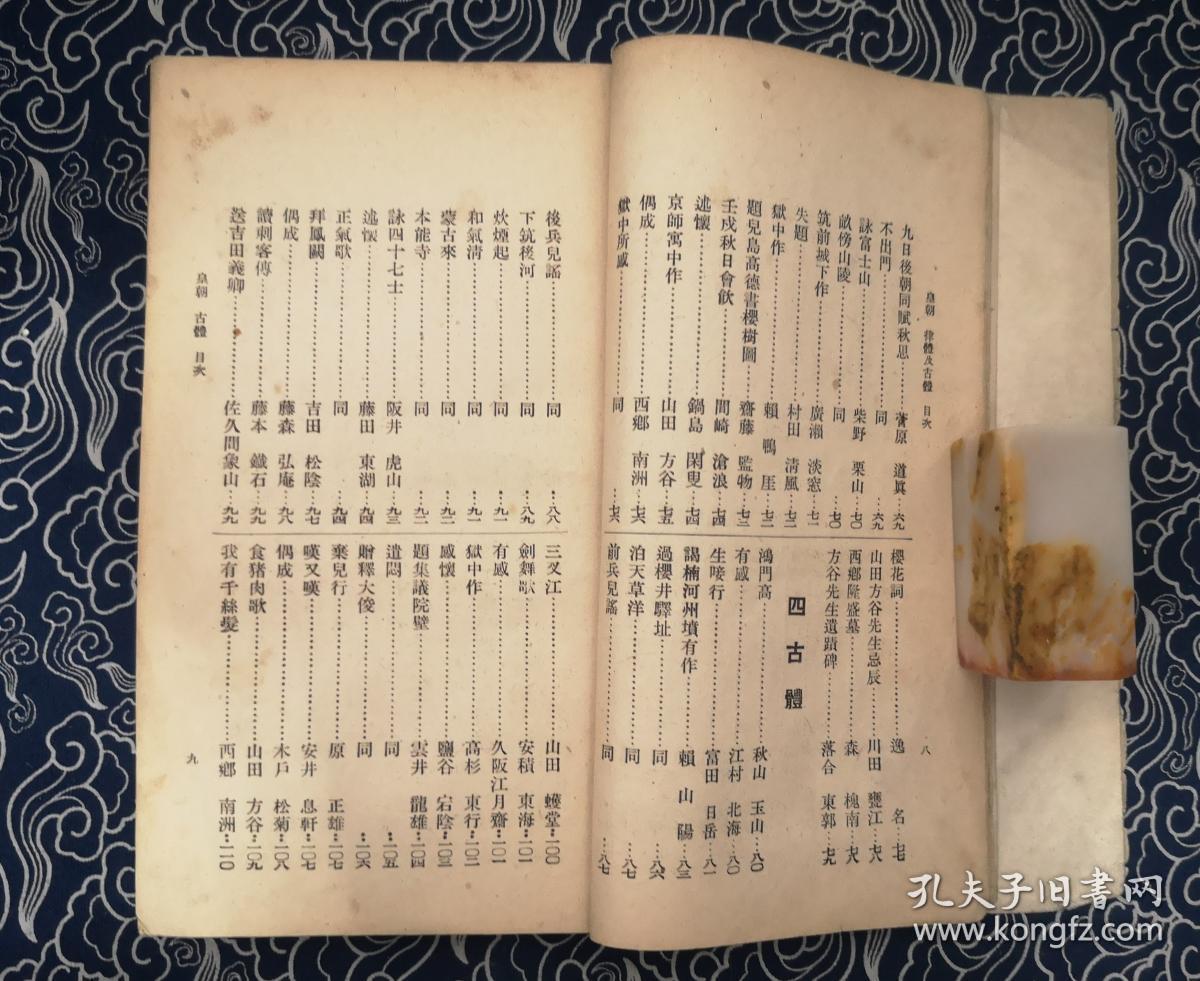 皇朝 律體及古體 目次
九日後朝同賦秋思………菅原 道眞…六九
不出門………同…六九
詠富士山………柴野 栗山…七〇
畝傍山陵………同…七〇
筑前城下作………廣瀨 淡窓…七一
失題………村田 淸風…七二
獄中作………賴 鴨厓…七二
題兒島高德書櫻樹圖………齋藤 監物…七三
壬戌秋日會飮………間崎 滄浪…七四
述懷………鍋島 閑叟…七四
京師寓中作………山田 方谷…七五
偶成………西鄕 南洲…七六
獄中所感………同…七六
櫻花詞………逸 名…七七
山田方谷先生忌辰………川田 甕江…七八
西鄕隆盛墓………森 槐南…七八
方谷先生遺蹟碑………落合 東郭…七九
四 古 體
鴻門高………秋山 玉山…八〇
有感………江村 北海…八〇
生唛行………富田 日岳…八一
謁楠河州墳有作………賴 山陽…八三
過櫻井驛址………同…八六
泊天草洋………同…八七
前兵兒謠………同…八七
八
皇朝 古體 目次
後兵兒謠………同…八八
下筑後河………同…八九
炊煙起………同…九一
和氣淸………同…九一
蒙古來………同…九二
本能寺………同…九二
詠四十七士………阪井 虎山…九三
述懷………藤田 東湖…九四
正氣歌………同…九四
拜鳳闕………吉田 松陰…九七
偶成………藤森 弘庵…九八
讀刺客傳………藤本 鐵石…九九
送吉田義卿………佐久間象山…九九
三叉江………山田 蠖堂…一〇〇
劍舞歌………安積 東海…一〇一
有感………久阪江月齋…一〇一
獄中作………高杉 東行…一〇二
感懷………鹽谷 宕陰…一〇三
題集議院壁………雲井 龍雄…一〇四
遣悶………同…一〇五
贈釋大俊………同…一〇六
棄兒行………原 正雄…一〇七
嘆又嘆………安井 息軒…一〇七
偶成………木戶 松菊…一〇八
食猪肉歌………山田 方谷…一〇九
我有千絲髮………西鄕 南洲…一一〇
九
孔夫子旧书网
www.kongfz.com